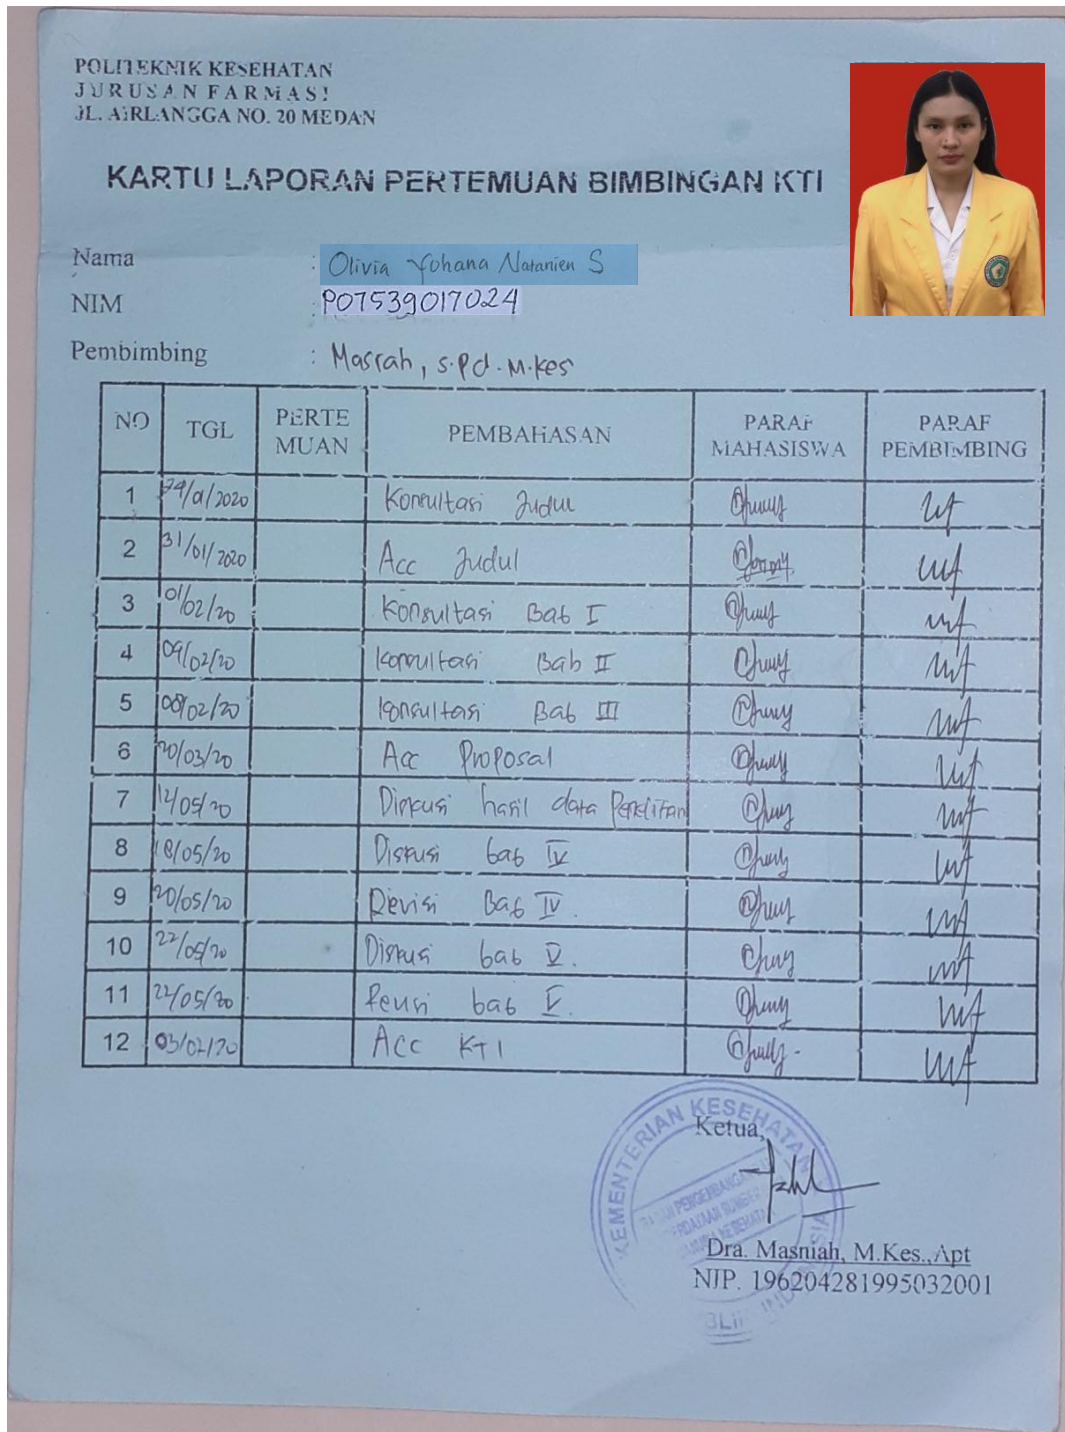 POLITEKNIK KESEHATAN
JURUSAN FARMASI
JL. AIRLANGGA NO. 20 MEDAN
KARTU LAPORAN PERTEMUAN BIMBINGAN KTI
Nama : Olivia Yohana Natanien S
NIM : P07539017024
Pembimbing : Masrah, S.Pd. M.Kes
NO TGL PERTE MUAN PEMBAHASAN PARAF MAHASISWA PARAF PEMBIMBING
1 29/01/2020 Konsultasi Judul
2 31/01/2020 Acc Judul
3 01/02/20 Konsultasi Bab I
4 04/02/20 Konsultasi Bab II
5 08/02/20 Konsultasi Bab III
6 20/03/20 Acc Proposal
7 12/05/20 Diskusi hasil data Penelitian
8 18/05/20 Diskusi bab IV
9 20/05/20 Revisi Bab IV.
10 22/05/20 Diskusi bab V.
11 22/05/20 Revisi bab V.
12 Acc KTI
KEMENTERIAN KESEHATAN
Ketua,
Dra. Masniah, M.Kes.,Apt
NIP. 196204281995032001